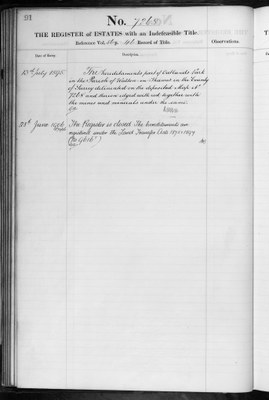 91
No. 7268
THE REGISTER of ESTATES with an Indefeasible Title.
Reference Vol. Record of Title.
Observations.
Date of Entry.
Description.
13th July 1895
The hereditaments part of Oatlands Park
in the Parish of Walton on Thames in the County
of Surrey delineated on the deposited Map No
7268 and thereon edged with red together with
the mines and minerals under the same
23rd June 1896
The Register is closed The hereditaments are
registered under the Land Transfer Acts 1875 & 1897